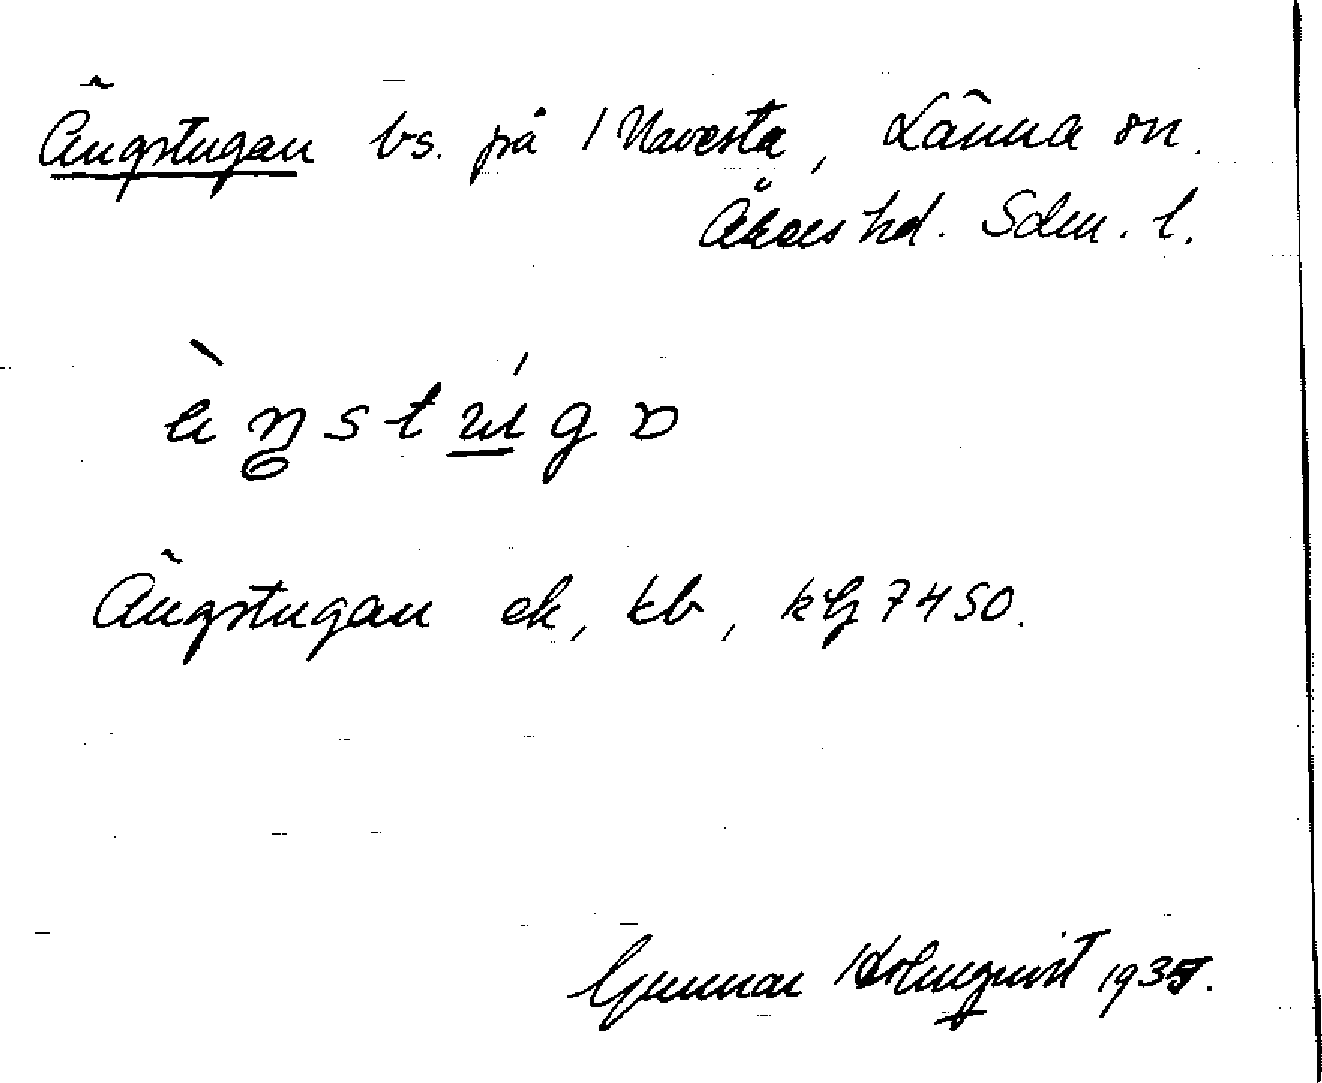 Ängstugan bs. på / Navesta, Länna sn.
Åkers hd. Sdm. l.
Ängstugan ek, kb, kbg 7450.
Gunnar Holmquist 1935.